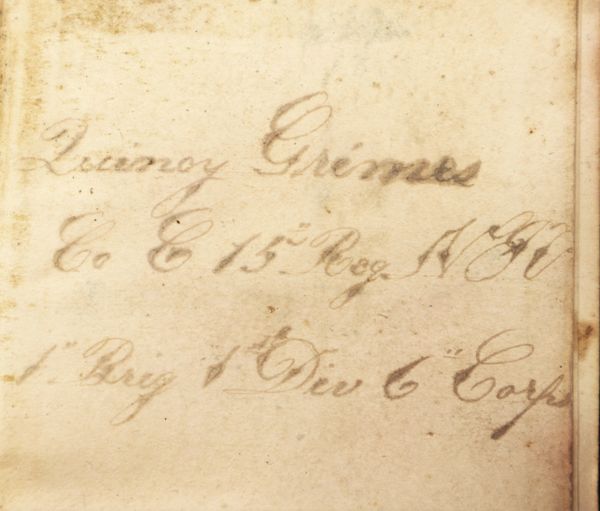 Quincy Grimes
Co E 15" Reg. N J V
1" Brig 1st Div 6" Corps